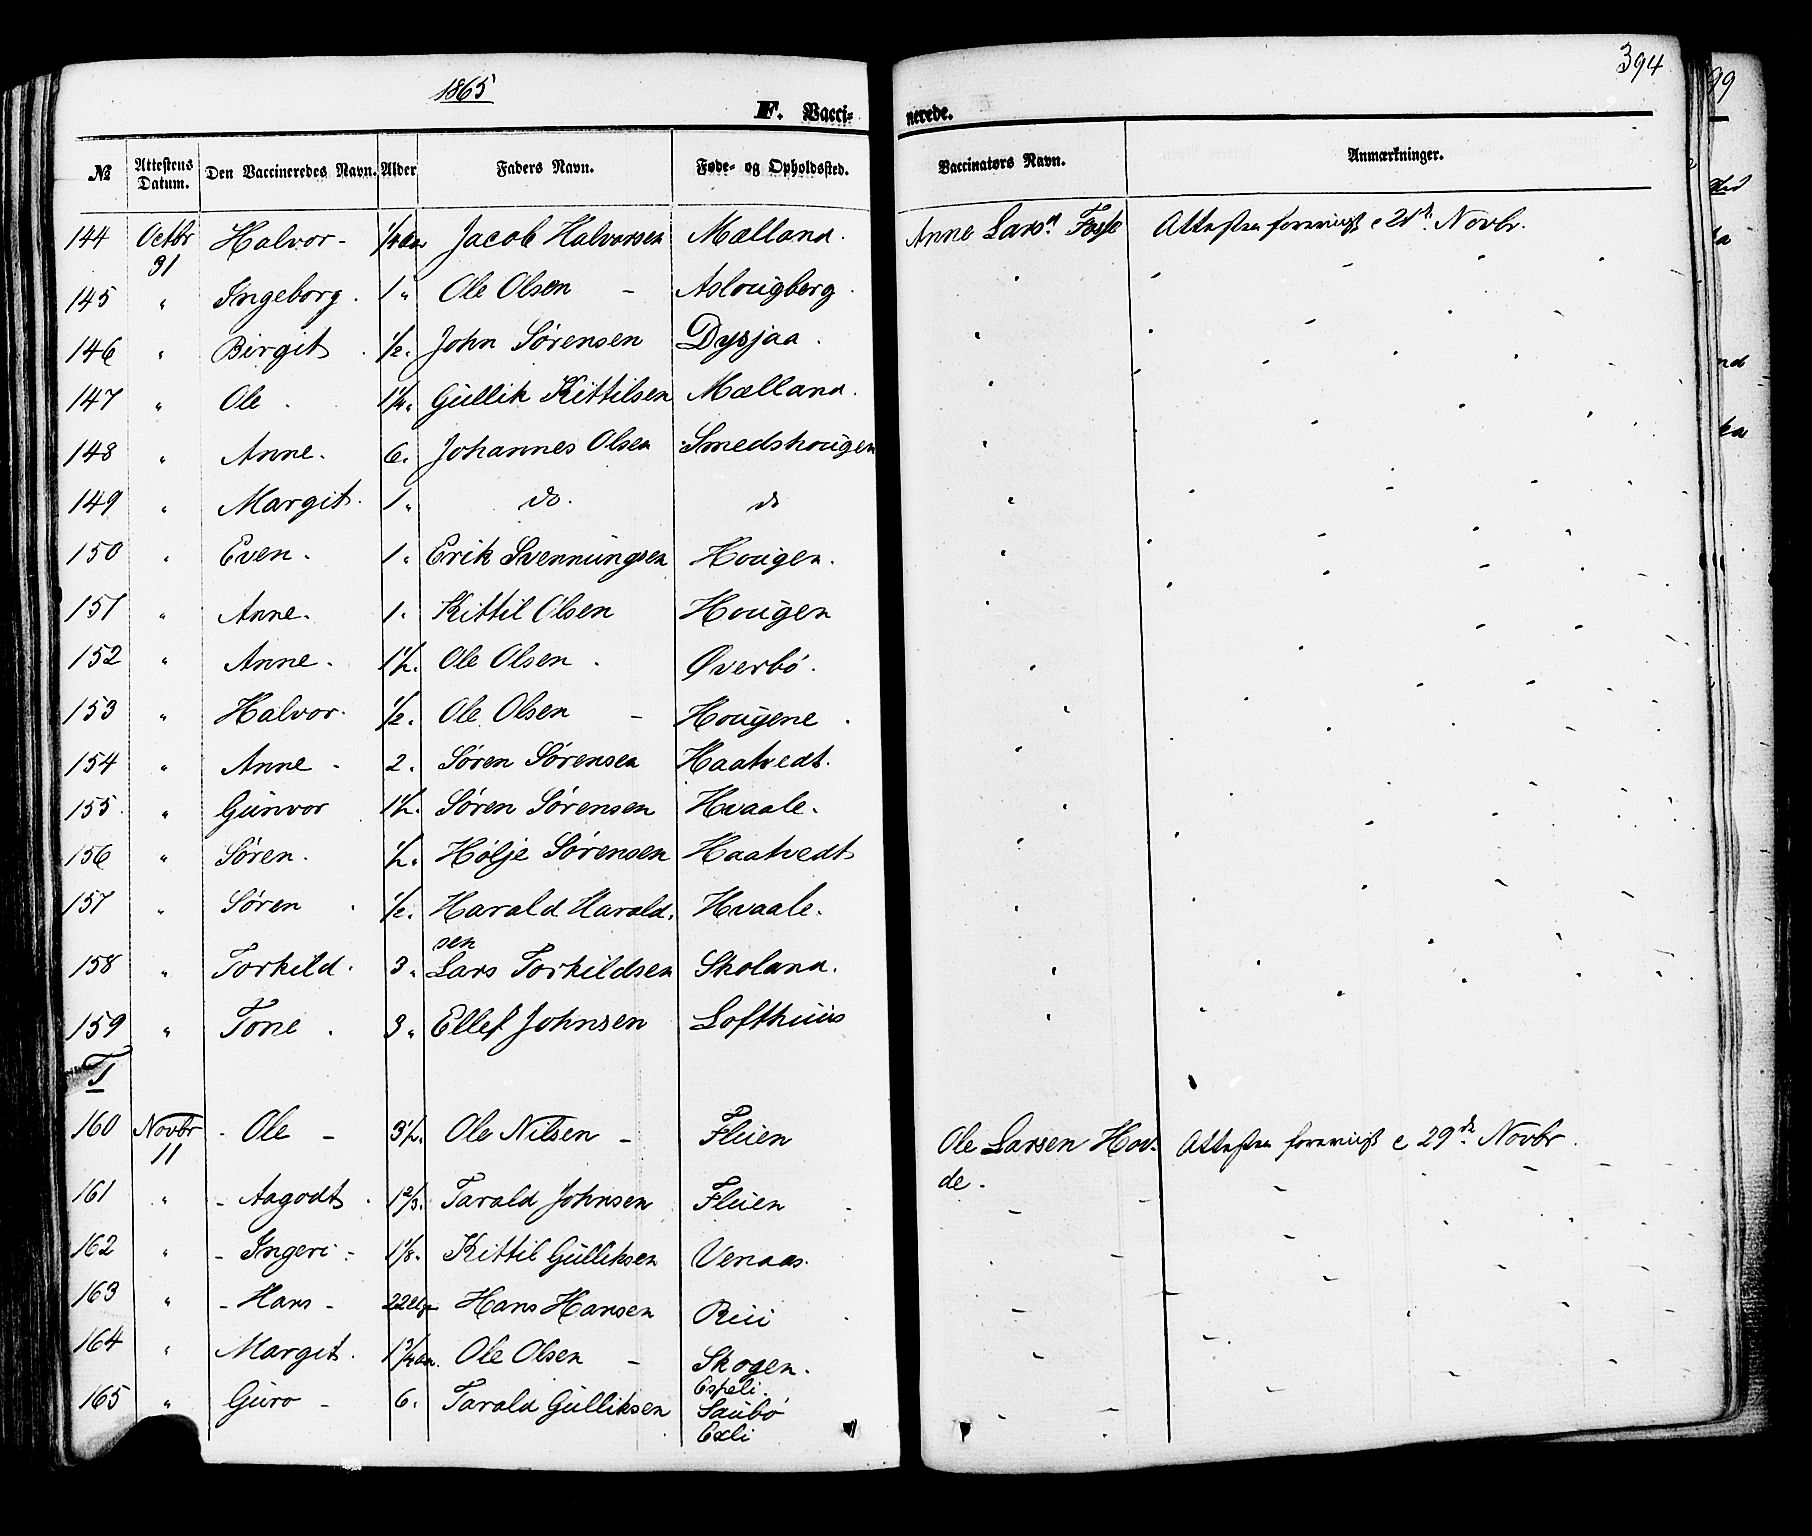 1865
394
F. Vacci-
nerede.
№ Attestens Datum. Den Vaccineredes Navn. Alder Faders Navn. Føde- og Opholdssted. Vaccinators Navn. Anmærkninger.
144 Octbr 31 Halvor - 1/4 Aar Jacob Halvorsen Mælland. Anne Larsn. Fosse Attesten foreviist e 21de Novbr.
145 " Ingeborg. 1 " Ole Olsen - Aslougberg.
146 " Birgit. 1/2. John Sørensen Dysjaa.
147 " Ole. 1 1/4. Gullik Kittilsen Mælland.
148 " Anne. 6. Johannes Olsen Smedshougen
149 " Margit. 1 " do. do
150 " Even. 1 " Erik Svenningsen Hougen.
151 " Anne. 1. Kittil Olsen Hougen
152 " Anne. 1 1/2. Ole Olsen. Øverbö.
153 " Halvor. 1/2. Ole Olsen - Hougene.
154 " Anne - 2. Søren Sørensen Haatvedt.
155. " Gunvor 1 1/2. Søren Sørensen Hvaale.
156 " Søren. 1/2. Hølje Sørensen Haatvedt
157 " Søren. 1/2. Harald Harald-
sen Hvaale.
158 " Torkild. 3. Lars Torkildsen Skoland.
159 " Tone. 3. Ellef Johnsen Lofthuus
T
160 Novbr 11 - Ole - 3 1/2. Ole Nilsen - Fluen Ole Larsen Hov-
de. Attesten foreviist e 29de Novbr.
161 " - Aagodt. 1 2/3. Tarald Johnsen Fluen
162 " - Ingeri - 1 1/8. Kittil Gulliksen Venaas.
163 " - Hans - 22 Hans Hansen Rui
164 " Margit. 1 3/4 Aar. Ole Olsen - Skogen.
Espeli.
165 " Guro - 6. Tarald Gulliksen Saubö
Exli